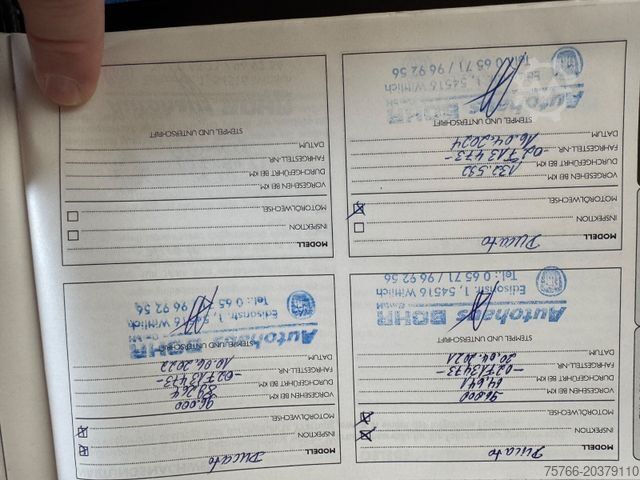 MODELL Ducato
INSPEKTION
MOTORÖLWECHSEL
VORGESEHEN BEI KM
DURCHGEFÜHRT BEI KM 64.641
FAHRGESTELL-NR.
DATUM 20.04.2021
STEMPEL UND UNTERSCHRIFT
Autohaus BOHR GmbH
Edisonstr. 1, 54516 Wittlich
Tel.: 0 65 71 / 96 92 56
MODELL Ducato
INSPEKTION
MOTORÖLWECHSEL
VORGESEHEN BEI KM
DURCHGEFÜHRT BEI KM
FAHRGESTELL-NR.
DATUM 10.06.2022
STEMPEL UND UNTERSCHRIFT
Autohaus BOHR
Edisonstr. 1, Wittlich
Tel.: 0 65 96 92 56
MODELL Ducato
INSPEKTION
MOTORÖLWECHSEL
VORGESEHEN BEI KM
DURCHGEFÜHRT BEI KM 132.532
FAHRGESTELL-NR.
DATUM 16.04.2024
STEMPEL UND UNTERSCHRIFT
Autohaus BOHR
1, 54516 Wittlich
Tel.: 0 65 71 / 96 92 56
MODELL
INSPEKTION
MOTORÖLWECHSEL
VORGESEHEN BEI KM
DURCHGEFÜHRT BEI KM
FAHRGESTELL-NR.
DATUM
STEMPEL UND UNTERSCHRIFT
75766-20379110